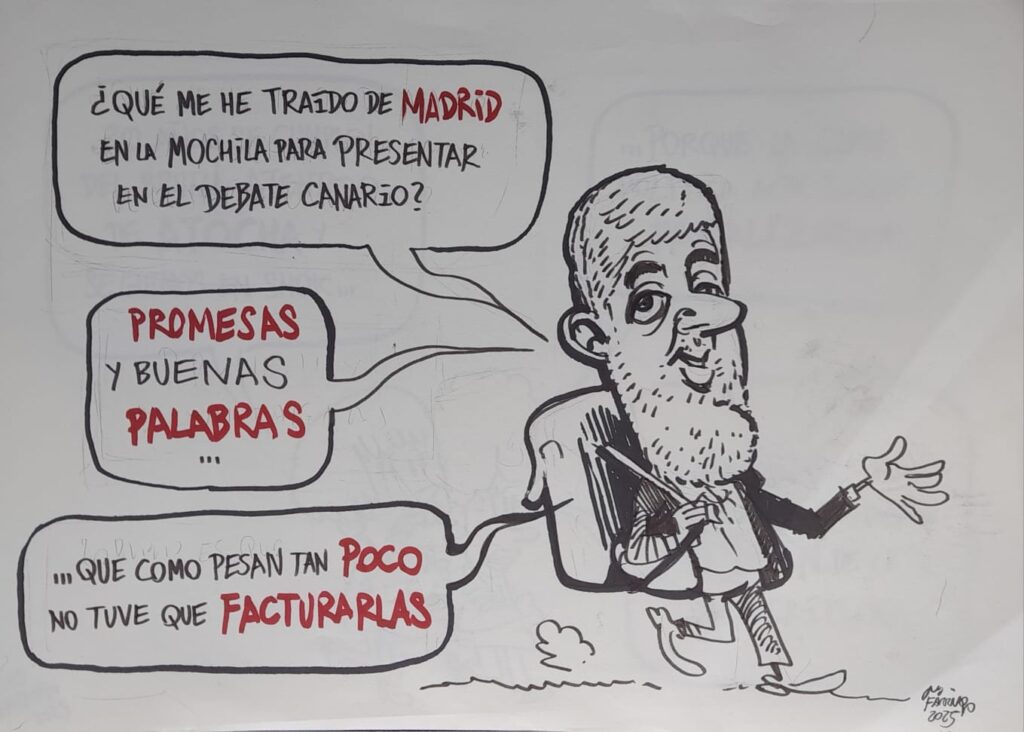 ¿QUÉ ME HE TRAÍDO DE MADRID
EN LA MOCHILA PARA PRESENTAR
EN EL DEBATE CANARIO?
PROMESAS
Y BUENAS
PALABRAS
...
...QUE COMO PESAN TAN POCO
NO TUVE QUE FACTURARLAS
2025